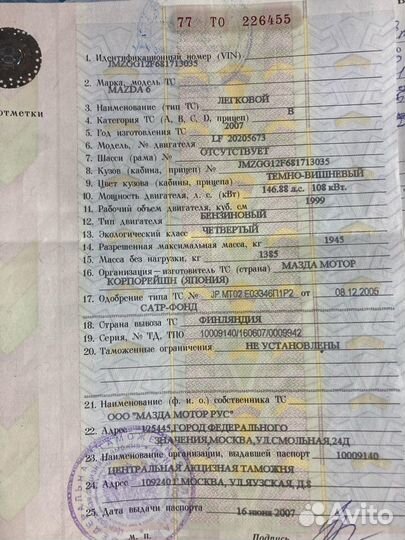 77 ТО 226455
1. Идентификационный номер (VIN)
JMZGG12F681713035
2. Марка, модель ТС
MAZDA 6
3. Наименование (тип ТС) ЛЕГКОВОЙ
4. Категория ТС (А, В, С, D, прицеп) B
5. Год изготовления ТС 2007
6. Модель, № двигателя LF 20205673
7. Шасси (рама) № ОТСУТСТВУЕТ
8. Кузов (кабина, прицеп) № JMZGG12F681713035
9. Цвет кузова (кабины, прицепа) ТЕМНО-ВИШНЕВЫЙ
10. Мощность двигателя, л. с. (кВт) 146.88 л.с. 108 кВт.
11. Рабочий объем двигателя, куб. см 1999
12. Тип двигателя БЕНЗИНОВЫЙ
13. Экологический класс ЧЕТВЕРТЫЙ
14. Разрешенная максимальная масса, кг 1945
15. Масса без нагрузки, кг 1385
16. Организация–изготовитель ТС (страна) МАЗДА МОТОР
КОРПОРЕЙШН (ЯПОНИЯ)
17. Одобрение типа ТС № JP.MT02.E03346П1Р2 от 08.12.2005
САТР-ФОНД
18. Страна вывоза ТС ФИНЛЯНДИЯ
19. Серия, № ТД, ТПО 10009140/160607/0009942
20. Таможенные ограничения НЕ УСТАНОВЛЕНЫ
21. Наименование (ф. и. о.) собственника ТС
ООО "МАЗДА МОТОР РУС"
22. Адрес 125445,ГОРОД ФЕДЕРАЛЬНОГО
ЗНАЧЕНИЯ,МОСКВА,УЛ.СМОЛЬНАЯ,24Д
23. Наименование организации, выдавшей паспорт 10009140
ЦЕНТРАЛЬНАЯ АКЦИЗНАЯ ТАМОЖНЯ
24. Адрес 109240 Г.МОСКВА, УЛ.ЯУЗСКАЯ, Д.8
25. Дата выдачи паспорта 16 июня 2007
М. П.
отметки
Avito